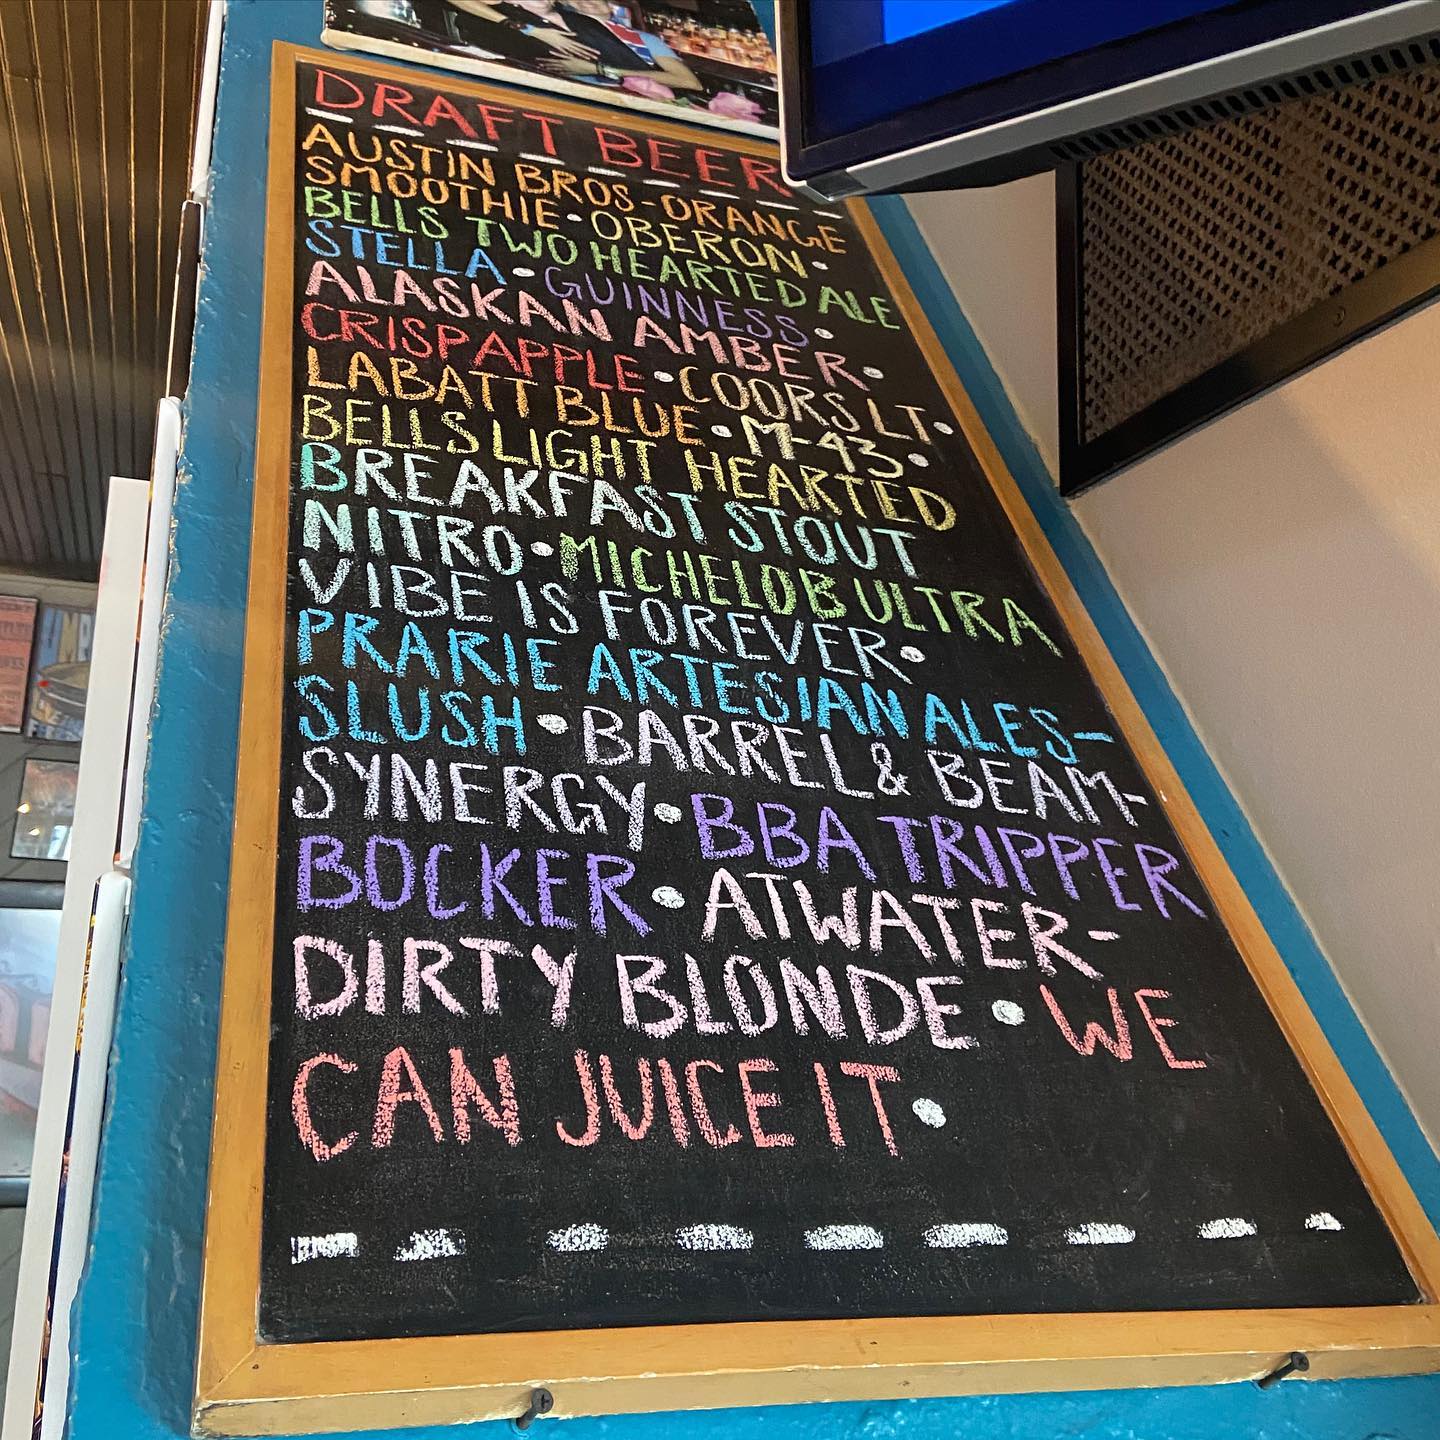 DRAFT BEERS
AUSTIN BROS-ORANGE
SMOOTHIE • OBERON •
BELLS TWO HEARTED ALE
STELLA • GUINNESS •
ALASKAN AMBER •
CRISP APPLE • COORS LT •
LABATT BLUE • M-43 •
BELLS LIGHT HEARTED
BREAKFAST STOUT
NITRO • MICHELOB ULTRA
VIBE IS FOREVER •
PRARIE ARTESIAN ALES-
SLUSH • BARREL & BEAM-
SYNERGY • BBA TRIPPER
BOCKER • ATWATER-
DIRTY BLONDE • WE
CAN JUICE IT •